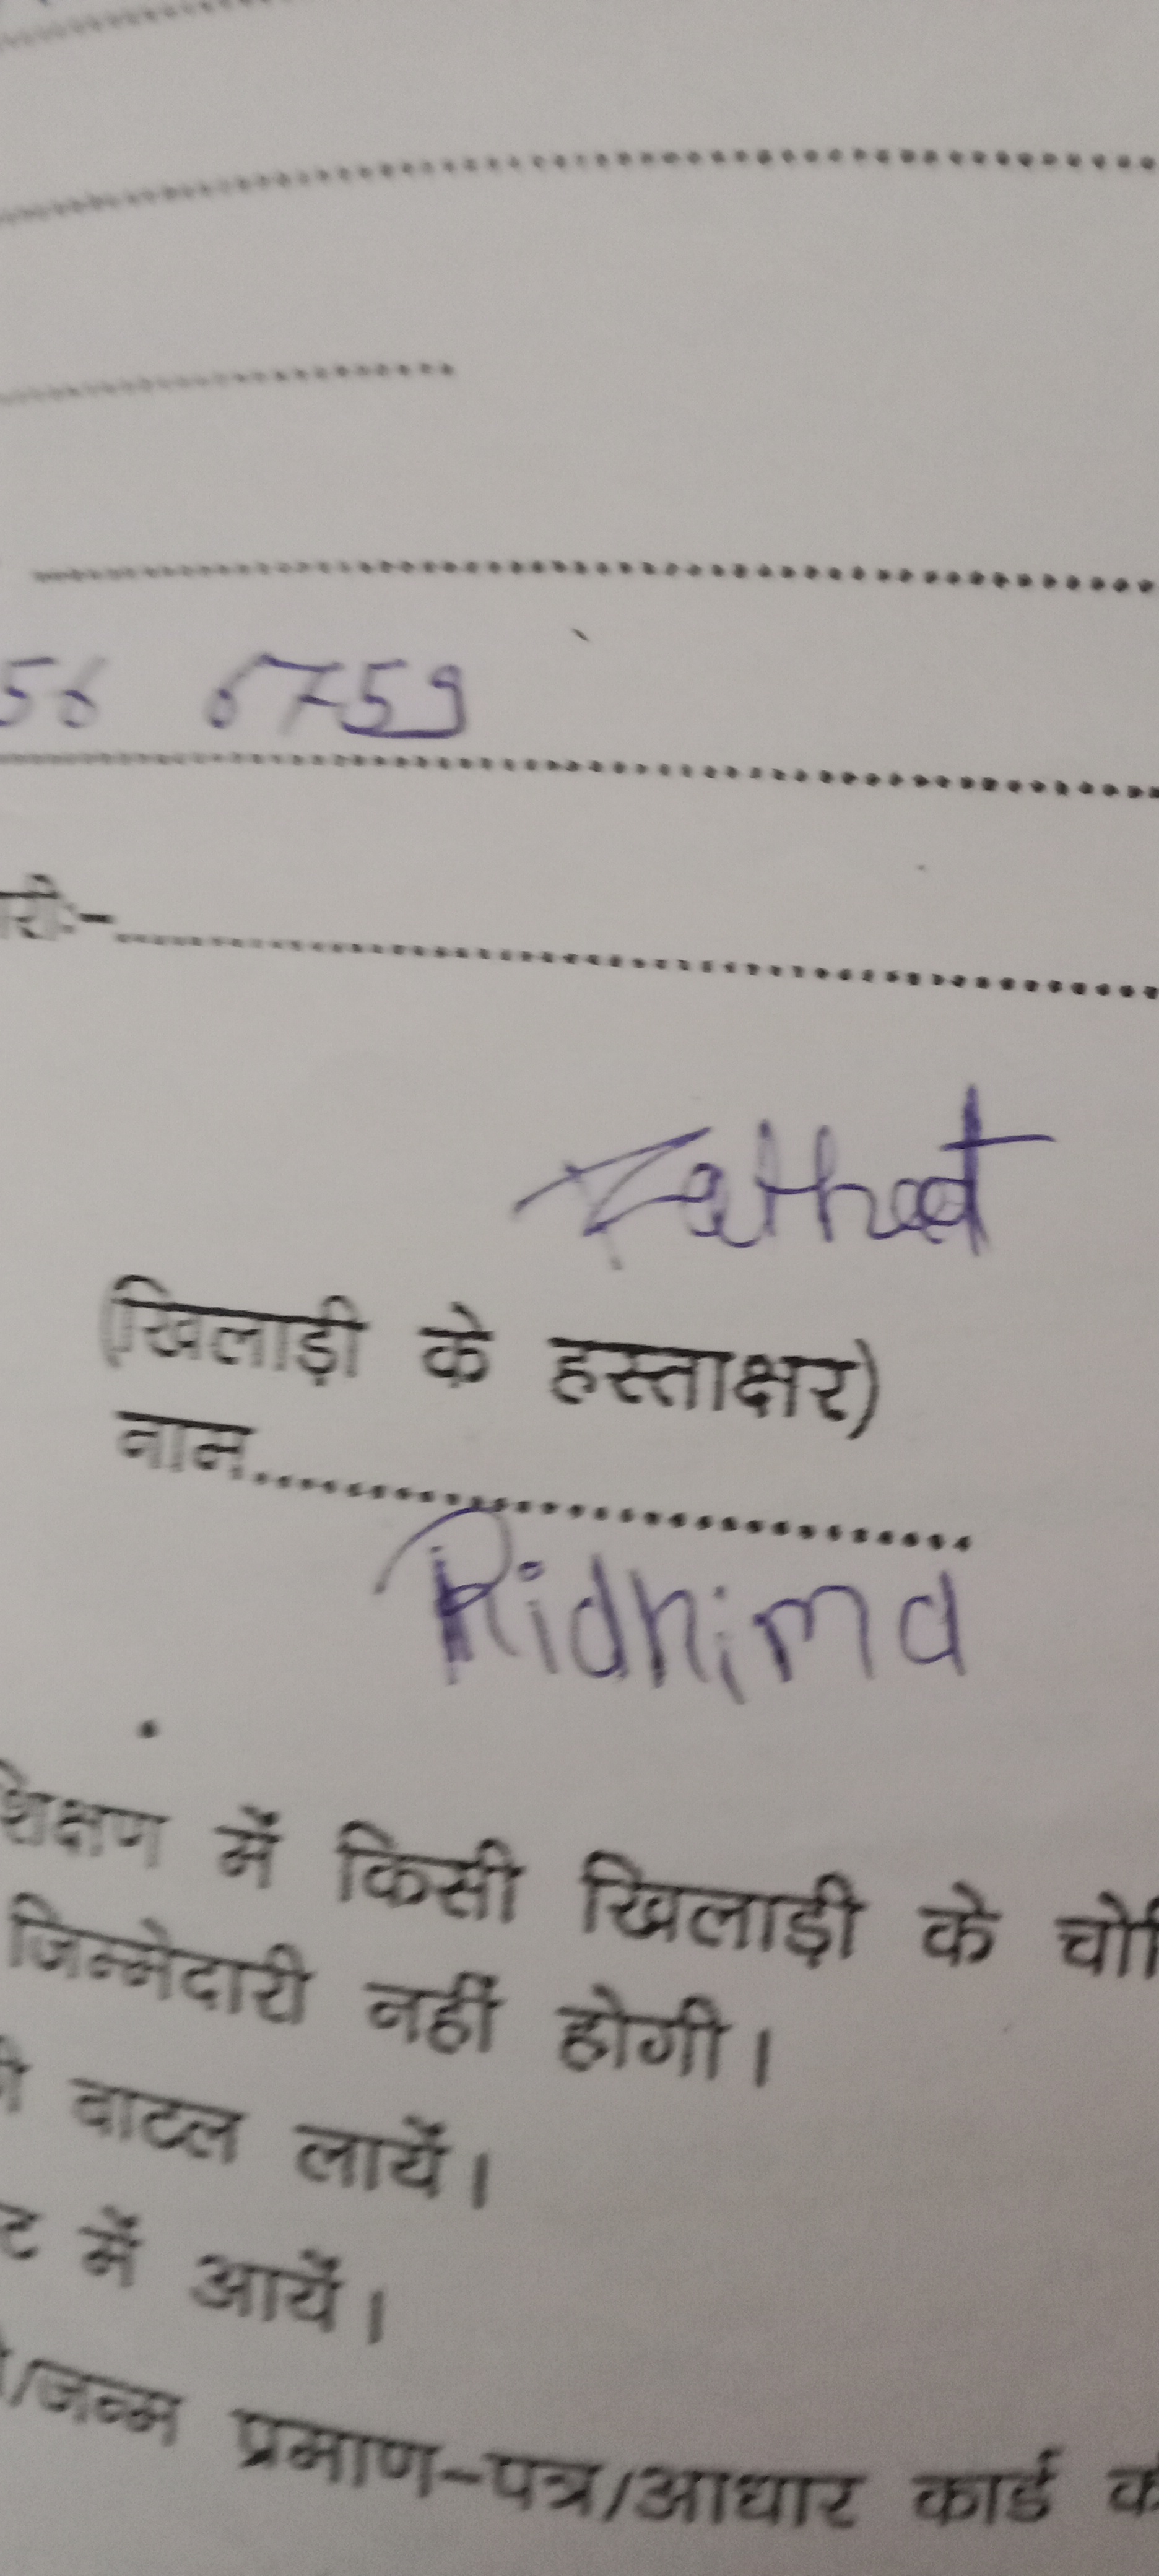 56 6759
री:-
(खिलाड़ी के हस्ताक्षर)
नाम
Ridhima
शिक्षण में किसी खिलाड़ी के
जिम्मेदारी नहीं होगी।
वाटल लायें।
में आयें।
/जन्म प्रमाण-पत्र/आधार कार्ड